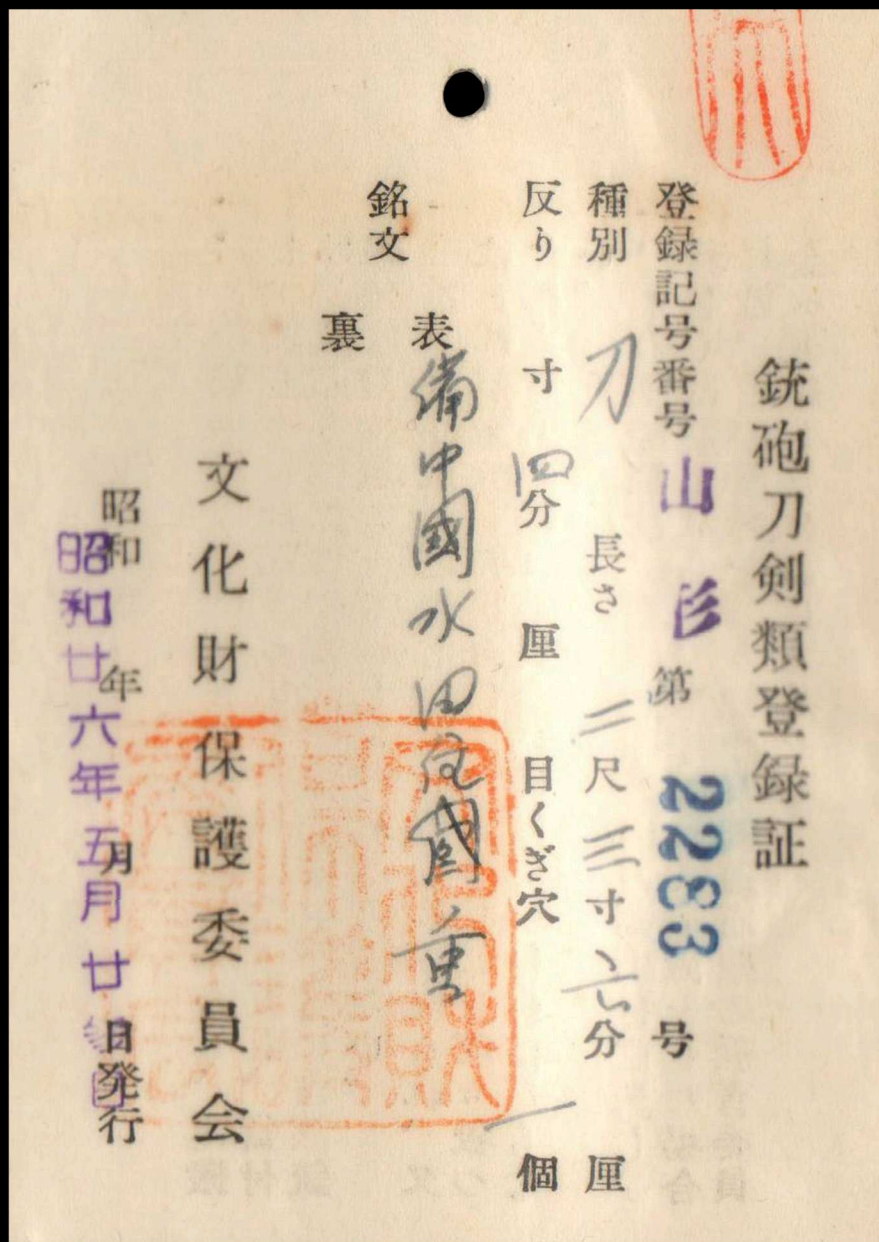 銃砲刀剣類登録証
登録記号番号 山形 第 2283 号
種別 刀 長さ 二尺 三寸 六分 厘
反り 寸 四分 厘 目くぎ穴 一個
銘文
表 備中國水田住國重
裏
文化財保護委員会
昭和 年 月 日発行
昭和廿六年五月廿